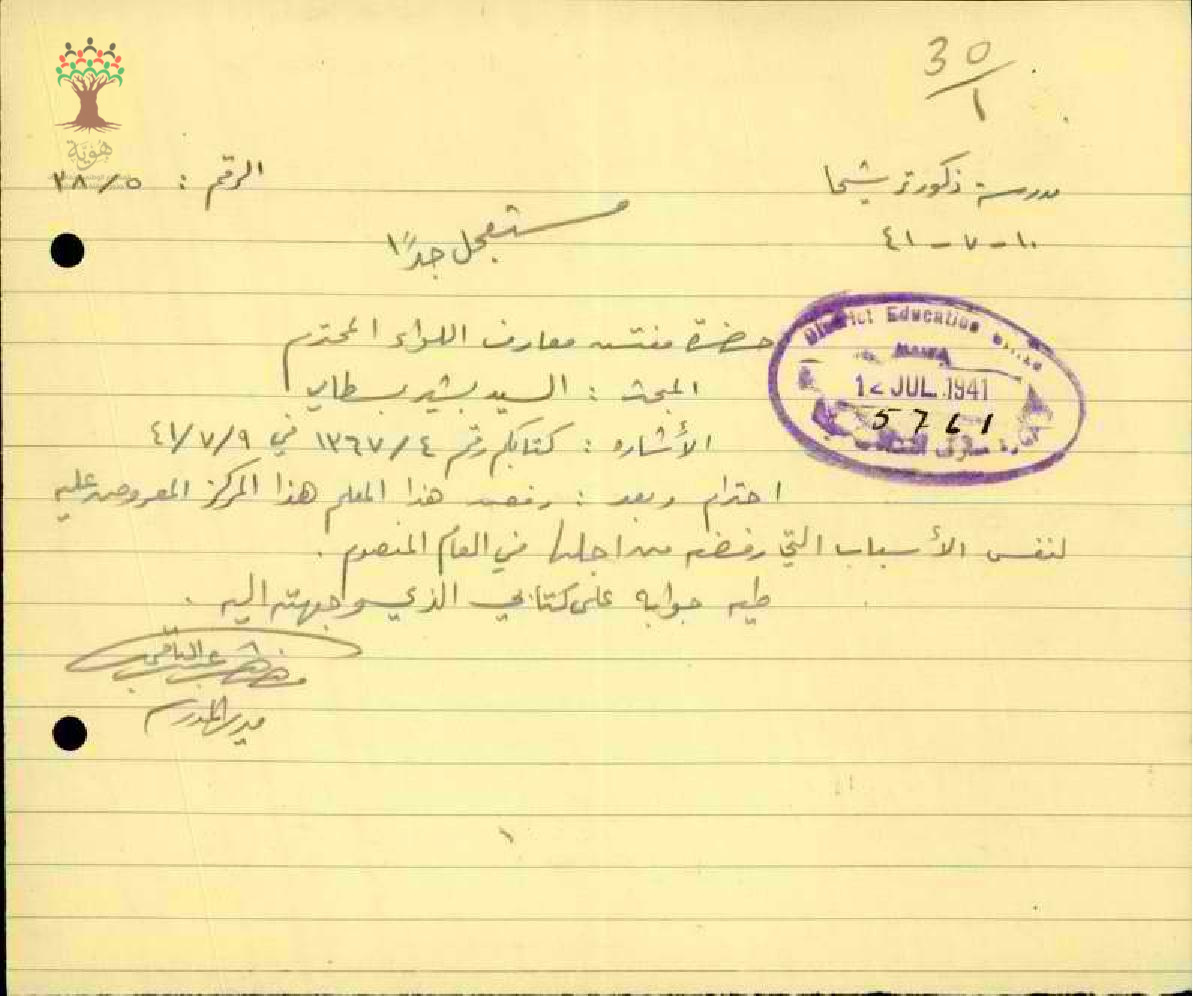 30/1
هوية
مدرسة ذكور ترشيحا
الرقم : ٣٨/٥
١٠ - ٧ - ٤١
مستعجل جداً
District Education Office
HAIFA
12 JUL 1941
5761
حضرة مفتش معارف اللواء المحترم
المبحث : السيد بشير بسطامي
الأشاره : كتابكم رقم ١٣٦٧/٤ في ٤١/٧/٩
احترام وبعد : رفض هذا المعلم هذا المركز المعروض عليه
لنفس الأسباب التي رفضه من اجلها في العام المنصرم .
طيه جوابه على كتابي الذي وجهته اليه .
مدير المدرسة